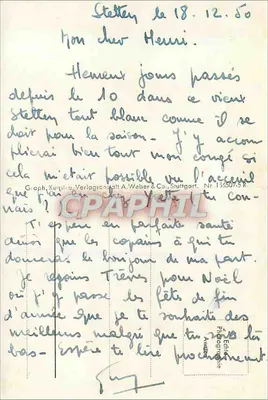 Stetten le 18.12.50
Mon cher Henri.
Heureux jours passés
depuis le 10 dans ce vieux
Stetten tout blanc comme il se
doit pour la saison. J'y accom
plirai bien tout mon congé si
cela m'était possible vu l'acceuil
que j'ai
Graph. Verlagsanstalt A. Weber & Co., Stuttgart. Nr.
CPAPHIL
tu con
nais !
T'espère en parfaite santé
ainsi que les copains à qui tu
donneras le bonjour de ma part.
Je rejoins Trèves pour Noël
où j'y passe les fêtes de fin
d'année que je te souhaite des
meilleures malgré que tu sois là
bas - Espère te lire prochainement.
Guy